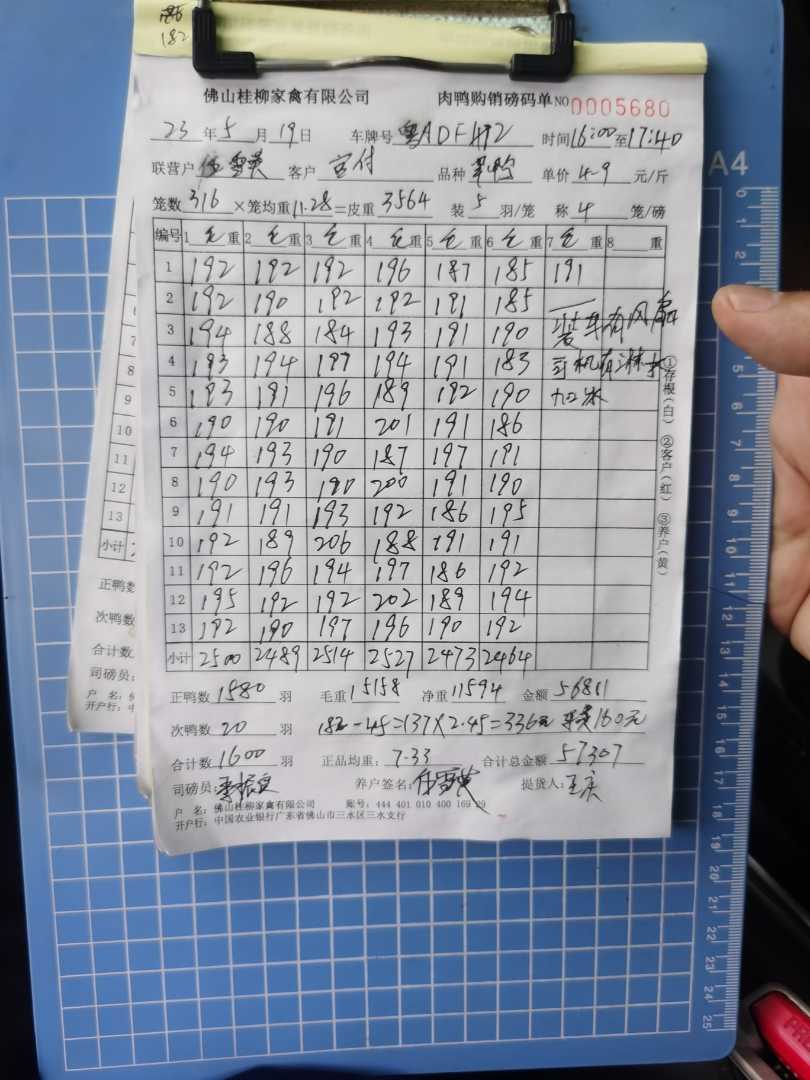 186
182
佛山桂柳家禽有限公司 肉鸭购销磅码单 NO 0005680
23 年 5 月 19 日 车牌号 粤ADF412 时间 16:00 至 17:40
联营户 伍雪英 客户 宫付 品种 单价 4.9 元/斤
笼数 316 ×笼均重 11.28 =皮重 3564 装 5 羽/笼 称 4 笼/磅
编号 1 毛 重 2 毛 重 3 毛 重 4 毛 重 5 毛 重 6 毛 重 7 毛 重 8 重
1 192 192 192 196 187 185 191
2 192 190 192 192 191 185
3 194 188 184 193 191 190 装车有风扇
4 193 194 197 194 191 183 司机有淋水
5 193 191 196 189 192 190 加冰
6 190 190 191 201 191 186
7 194 193 190 187 197 191
8 190 193 190 200 191 190
9 191 191 193 192 186 195
10 192 189 206 188 191 191
11 192 196 194 197 186 192
12 195 192 192 202 189 194
13 192 190 197 196 190 192
小计 2500 2489 2514 2527 2473 2464
正鸭数 1580 羽 毛重 15158 净重 11594 金额 56811
次鸭数 20 羽 182-45=137×2.45=336元 160元
合计数 1600 羽 正品均重: 7.33 合计总金额 57307
司磅员: 李振宜 养户签名: 伍雪英 提货人:
户 名: 佛山桂柳家禽有限公司 账号: 444 401 010 400 169 29
开户行: 中国农业银行广东省佛山市三水区三水支行
①存根(白) ②客户(红) ③养户(黄)
8
9
10
11
12
13
小计
正鸭数
次鸭数
合计数
司磅员:
户 名:
开户行:
A4
0
2
5
6
7
8
9
10
11
12
13
14
15
16
17
18
19
20
21
22
23
24
25